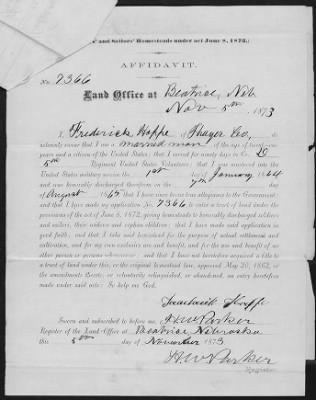 and Sailors' Homesteads under act June 8, 1872.)
AFFIDAVIT.
No. 7366
Land Office at Beatrice, Neb
Nov 5th, 1873
I, Frederick Hoppe of Thayer Co, do
solemnly swear that I am a married man of the age of twenty-one
years and a citizen of the United States; that I served for ninety days in Co. D
5th Regiment United States Volunteers; that I was mustered into the
United States military service the 1st day of January 1864
and was honorably discharged therefrom on the 7th day
of August 186; that I have since borne true allegiance to the Government;
and that I have made my application No. 7366 to enter a tract of land under the
provisions of the act of June 8, 1872, giving homesteads to honorably discharged soldiers
and sailors, their widows and orphan children; that I have made said application in
good faith; and that I take said homestead for the purpose of actual settlement and
cultivation, and for my own exclusive use and benefit, and for the use and benefit of no
other person or persons whomsoever; and that I have not heretofore acquired a title to
a tract of land under this, or the original homestead law, approved May 20, 1862, or
the amendments thereto, or voluntarily relinquished, or abandoned, an entry heretofore
made under said acts: So help me God.
Hoppe
Sworn and subscribed to before me, H W Parker
Register of the Land-Office at Beatrice Nebraska
this 5th day of November 1873
H. W. Parker
Register.